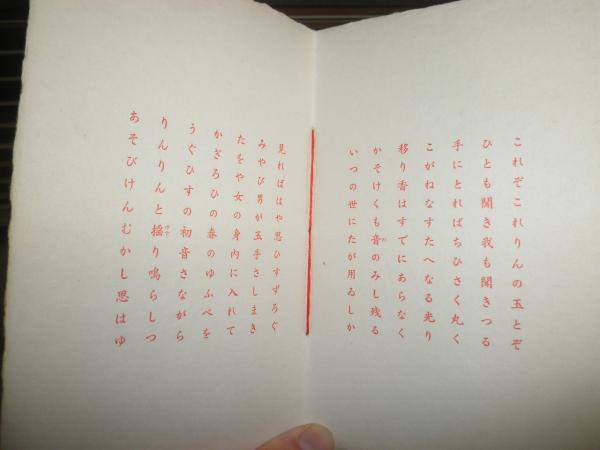 これぞこれりんの玉とぞ
ひとも聞き我も聞きつる
手にとればちひさく丸く
こがねなすたへなる光り
移り香はすでにあらなく
かそけくも音のみし残る
いつの世にたが用ゐしか
見ればはや思ひすずろぐ
みやび男が玉手さしまき
たをや女の身内に入れて
かぎろひの春のゆふべを
うぐひすの初音さながら
りんりんと揺り鳴らしつ
あそびけんむかし思はゆ